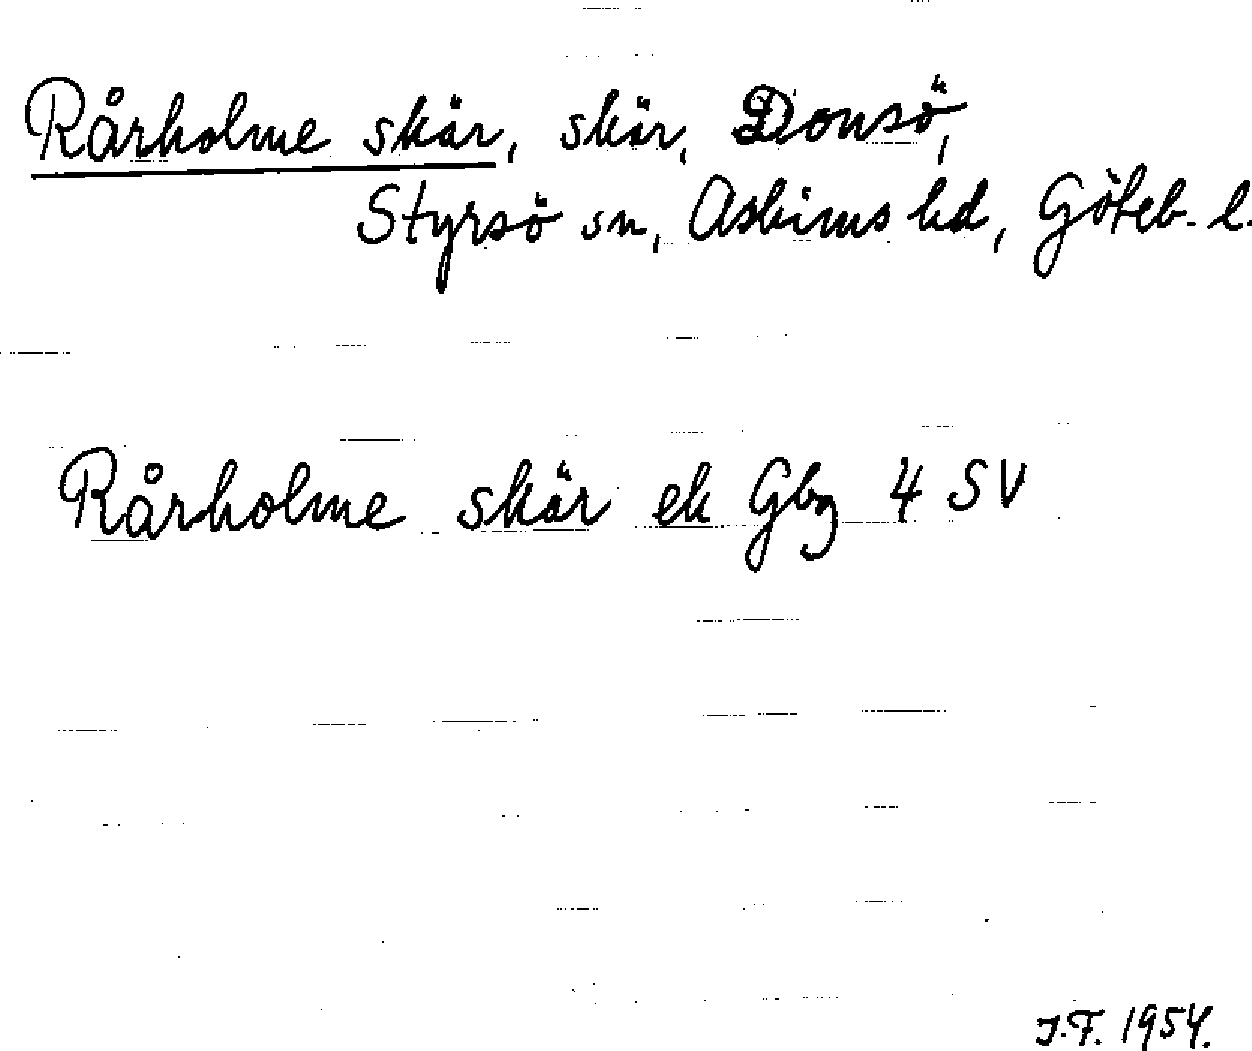 Rårholme skär, skär, Donsö,
Styrsö sn, Askims hd, Göteb. l.
Rårholme skär ek Gbg 4 SV
J.F. 1954.